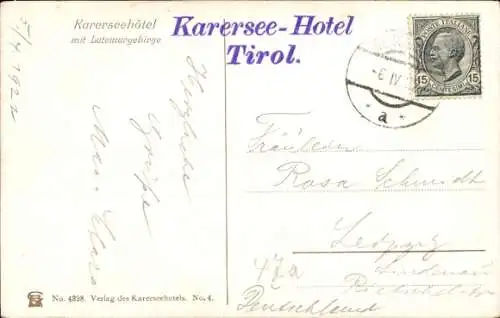 Karerseehôtel
mit Latemargebirge
Karersee-Hotel
Tirol.
5/4 1922
Herzliche
Grüße
POSTE ITALIANE
15 15
CENTESIMI
-6 IV
* a *
Fräulein
Rosa Schmidt
Leipzig
Lindenau
47a
Deutschland
No. 4398. Verlag des Karerseehotels. No. 4.